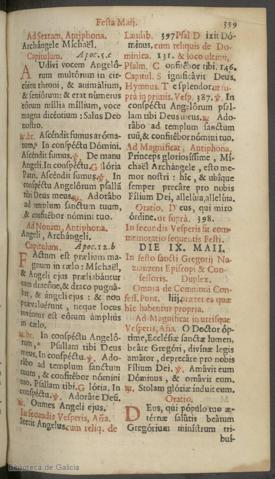 Festa Maij. 339
Ad Sextam, Antiphona.
Archângele Michaël.
Capitulum. Apoc. 5. c
AUdivi vocem Angelô-
rum multôrum in cir-
cûitu throni, & animalium,
& seniôrum: & erat númerus
eôrum míllia míllium, voce
magna dicéntium: Salus Deo
nostro.
Ascéndit fumus arôma-
tum, In conspéctu Dômini.
Ascéndit fumus. De manu
Angeli. In conspéctu. Glória
Patri. Ascéndit fumus. In
conspéctu Angelôrum psallã
tibi Deus meus. Adorábo
ad templum sanctum tuum,
& confitébor nómini tuo.
Ad Nonam, Antiphona.
Angeli, Archángeli.
Capitulum. Apoc. 12. b
FActum est prælium ma-
gnum in cælo: Míchaël,
& Angeli ejus præliabántur
cum dracóne, & draco pugná-
bat, & ángeli ejus: & non
prævaluérunt, neque locus
invéntus est eôrum ámplius
in cælo.
In conspéctu Angelô-
rum, * Psallam tibi Deus
meus. In conspéctu. Ado-
rábo ad templum sanctum
tuum, & confitébor nómini
tuo. Psallam tibi. Glória. In
conspéctu. Adoráte Deũ.
Omnes Angeli ejus.
In secundis Vesperis, Aña.
Stetit Angelus. cum reliq. de
Laudib. 397 Psal. Dixit Dó-
minus, cum reliquis de Do-
minica. 131. & loco ultimi,
Psalm. Confitébor tibi. 146.
Capitul. Significávit Deus.
Hymnus. Te splendor. ut su-
pra in primis. Vesp. 387. In
conspéctu Angelôrum psal-
lam tibi Deus meus. Ado-
rábo ad templum sanctum
tuũ, & confitébor nómini tuo.
Ad Magnificat, Antiphona.
Princeps gloriosíssime, Mí-
chaël Archángele, esto me-
mor nostri: hic, & ubíque
semper precáre pro nobis
Fílium Dei, allelúia, allelúia.
Oratio. Deus, qui miro
órdine. ut suprà. 398.
In secundis Vesperis fit com-
memoratio sequentis Festi.
DIE IX. MAII.
In festo sancti Gregorij Na-
zianzeni Episcopi & Con-
fessoris. Duplex.
Omnia de Communi Con-
fess. Pont. liij. præter ea quæ
hic habentur propria.
Ad Magnificat in utrisque
Vesperis, Aña. O Doctor óp-
time, Ecclésiæ sanctæ lumen,
beáte Gregóri, divínæ legis
amátor, deprecáre pro nobis
Fílium Dei. Amávit eum
Dóminus, & ornávit eum.
Stolam glóriæ índuit eum.
Oratio.
DEus, qui pópulo tuo æ-
térnæ salútis beátum
Gregórium minístrum tri-
buí-
Biblioteca de Galicia